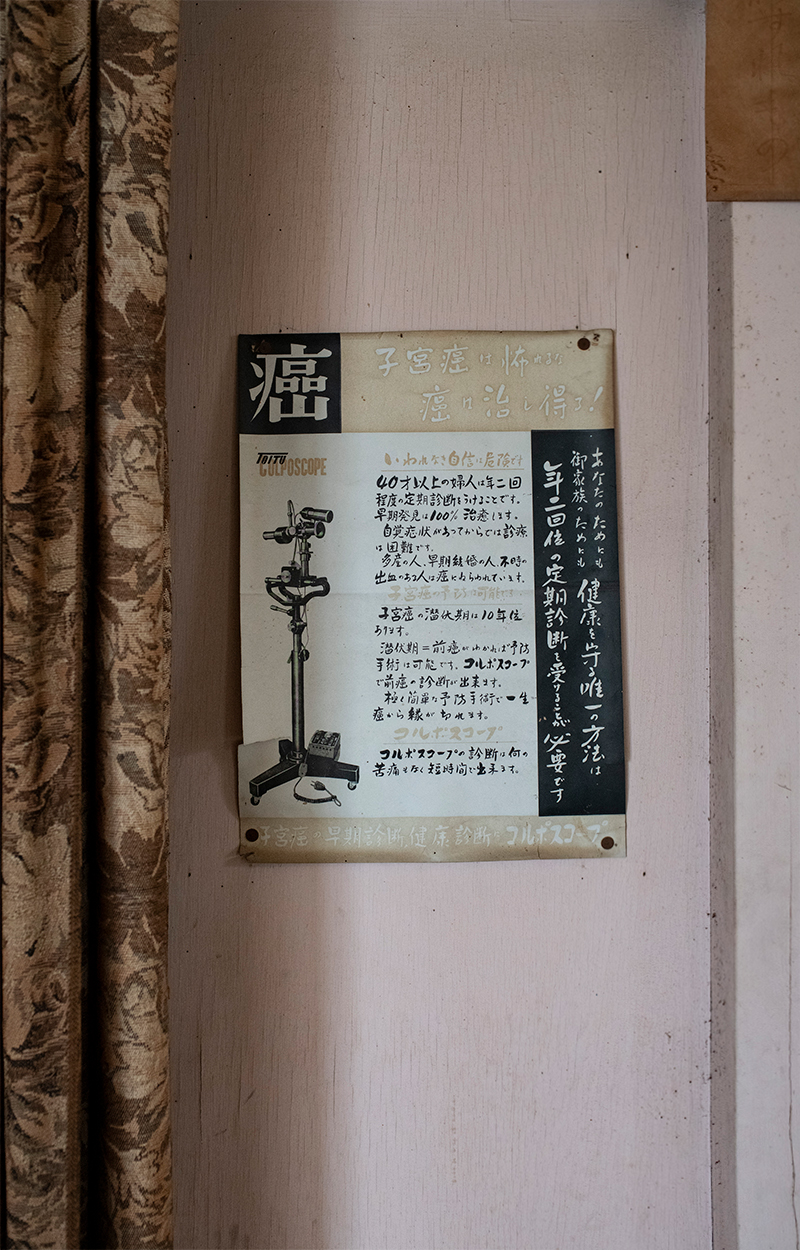 癌
子宮癌は怖れるな
癌は治し得る!
TOITU
COLPOSCOPE
いわれなき自信は危険です
40才以上の婦人は年二回
程度の定期診断をうけることです。
早期発見は100%治癒します。
自覚症状があってからでは診療
は困難です。
多産の人、早期結婚の人、不時の
出血のある人は癌にねらわれています。
子宮癌の予防は可能です
子宮癌の潜伏期は10年位
あります。
潜伏期=前癌がわかれば予防
手術は可能です。コルポスコープ
で前癌の診断が出来ます。
極く簡単な予防手術で一生
癌から縁が切れます。
コルポスコープ
コルポスコープの診断は何の
苦痛もなく短時間で出来ます。
あなたのためにも
御家族のためにも
健康を守る唯一の方法は
年二回位の定期診断を受けることが必要です
子宮癌の早期診断、健康診断にコルポスコープ